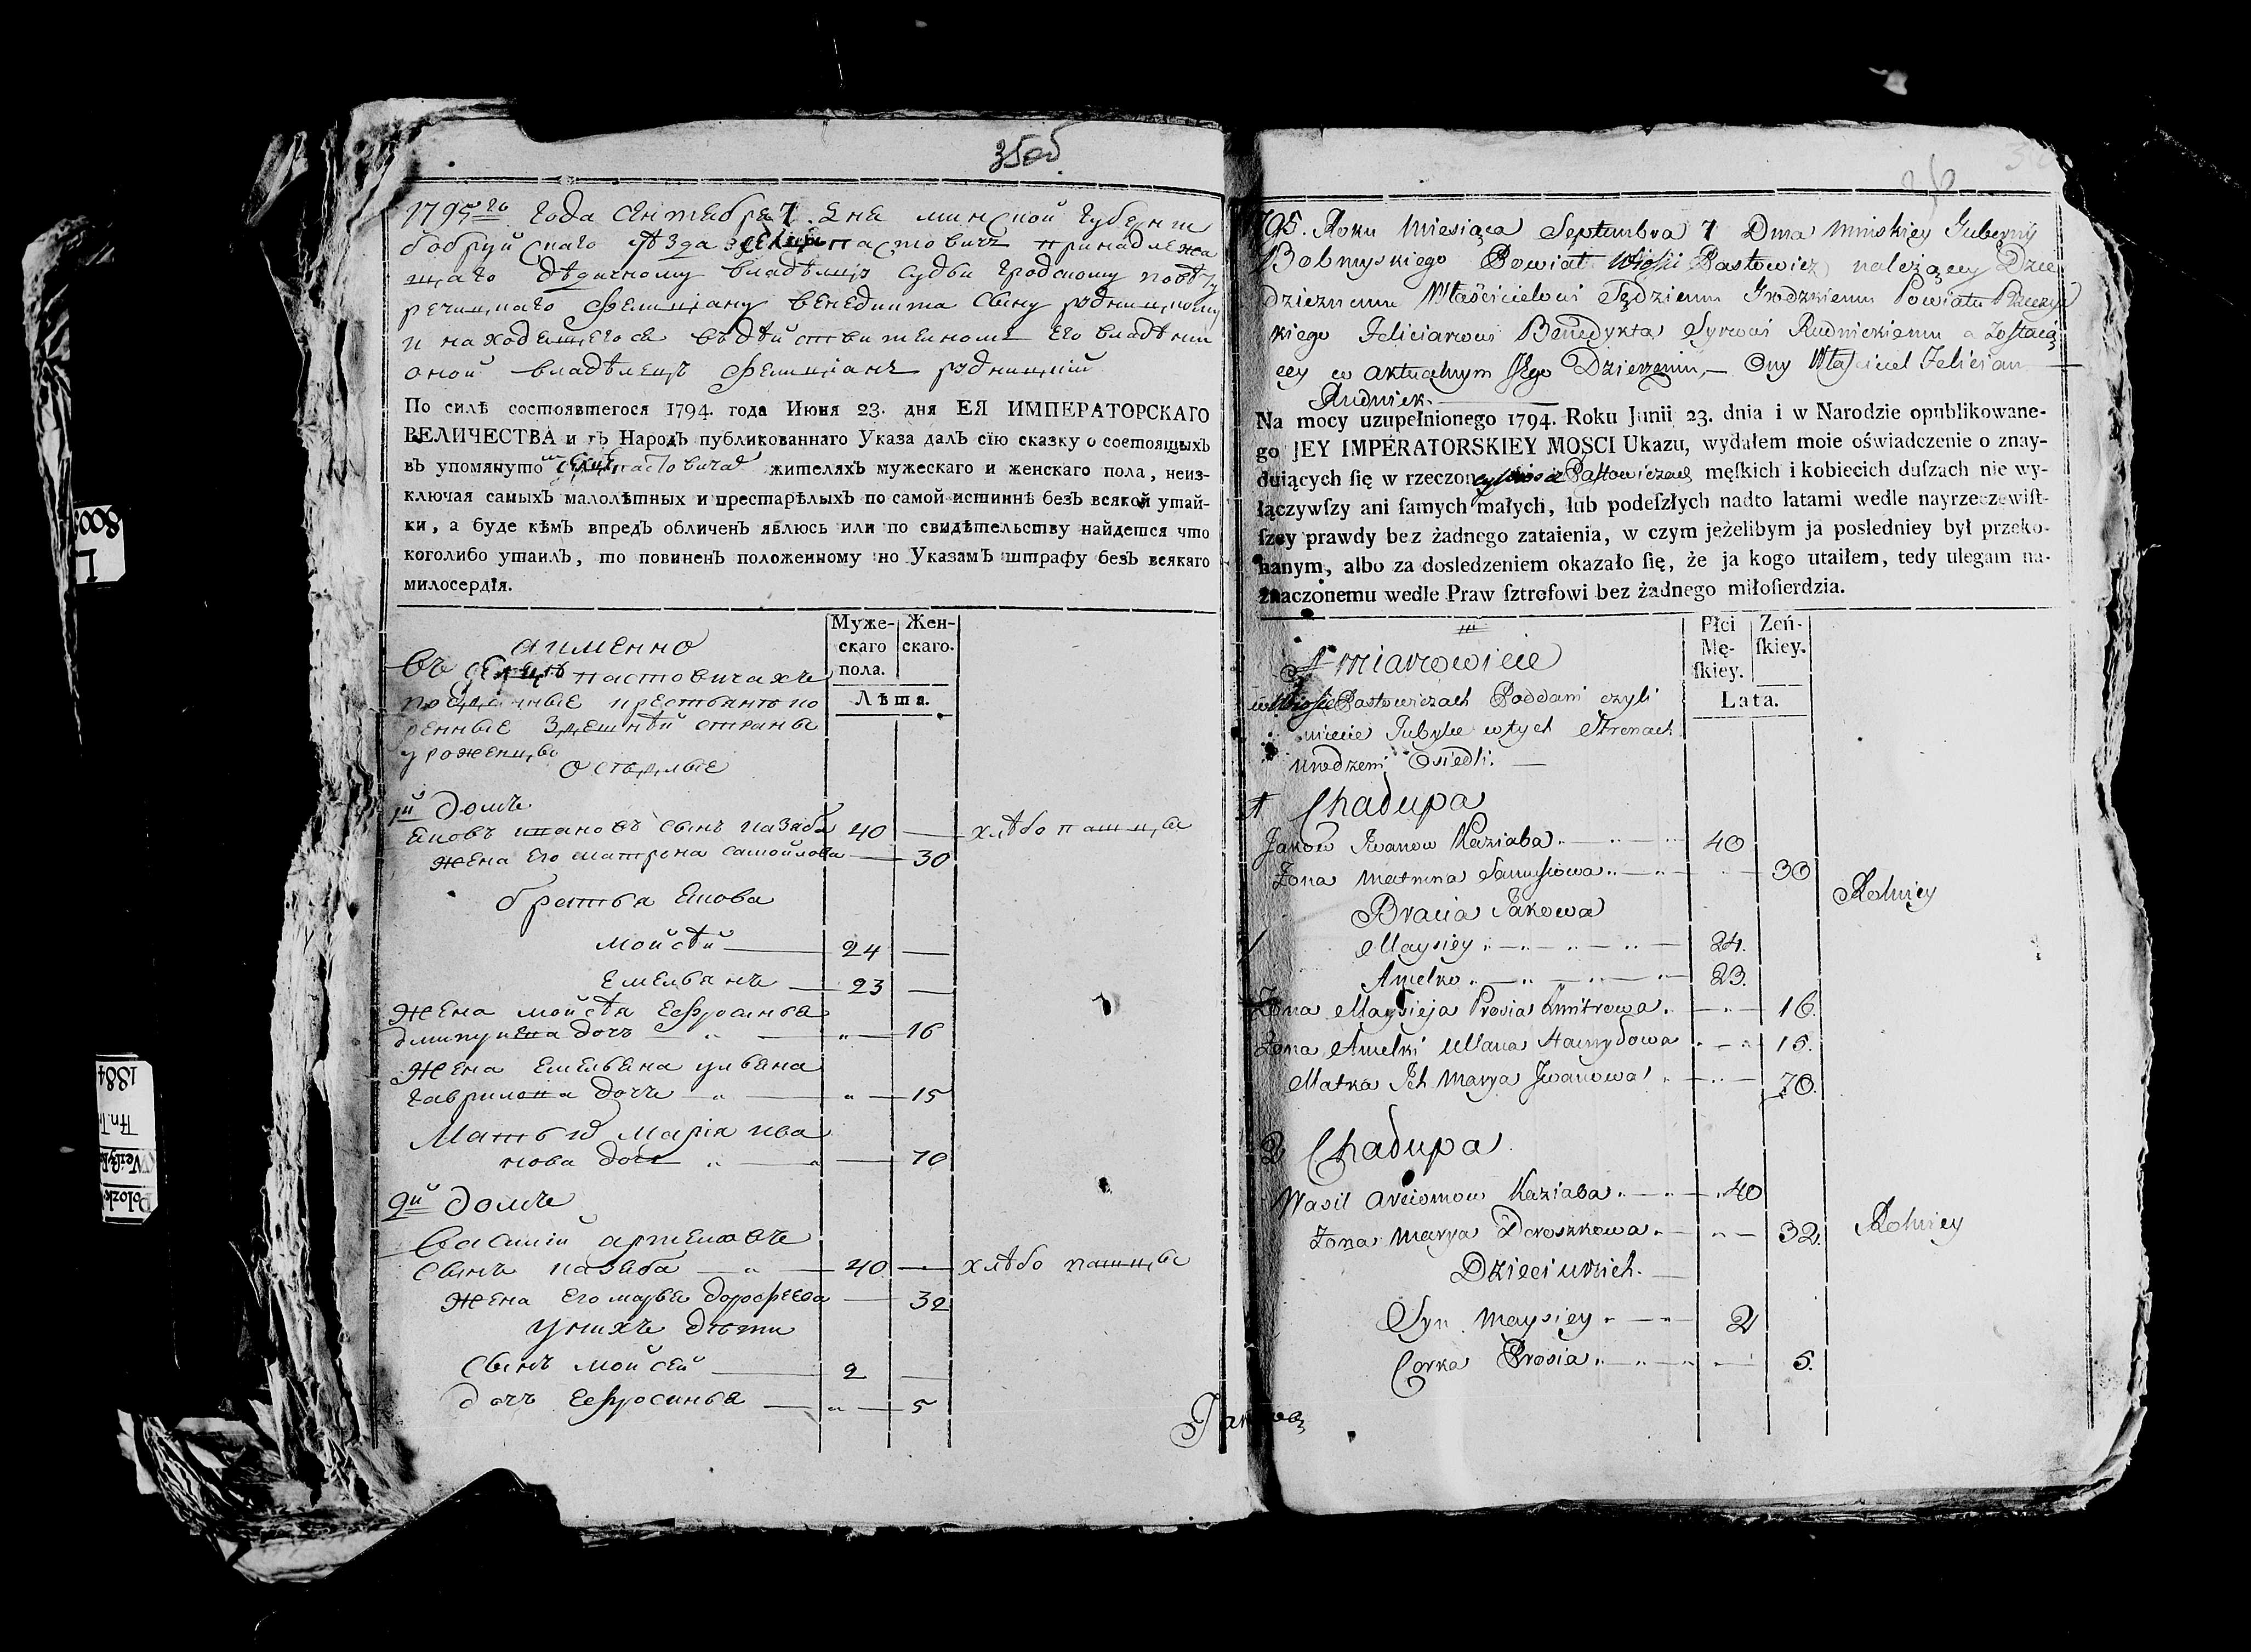 35об
1795го года сентебря 7 дне минской губернии
бобруйскаго уезда селца пастовичь принадлежа
щаго дѣдичному владѣлцу судьи гродскому повѣту
речицкаго фелициану бенедикта сыну рудницкому
и находещегосе въ действителномъ его владѣнии
оной владѣлецъ фелицианъ рудницкий
По силѣ состоявшегося 1794. года Июня 23. дня ЕЯ ИМПЕРАТОРСКАГО
ВЕЛИЧЕСТВА и въ НародЪ публикованнаго Указа далЪ сїю сказку о состоящыхЪ
въ упомянутомъ селце пастовичах жителяхЪ мужескаго и женскаго пола, неиз-
ключая самыхЪ малолѣтных и престарѣлыхЪ по самой истиннѣ безЪ всякой утай-
ки, а буде кѣмЪ впредЪ обличенЪ явлюсь или по свидѣтельству найдется что
коголибо утаилЪ, то повиненЪ положенному по УказамЪ штрафу безЪ всякаго
милосердїя.
а именно
Муже-
скаго
пола.
Жен-
скаго.
Лѣта.
въ селце пастовичахъ
ренные здешнѣй страны
уроженцы
оседлые
1й домъ
Яковъ ивановъ сынъ казаба 40 — хлѣбопашцы
жена его матрона самойлова — 30
братья Якова
мойсѣй — 24 —
емельянъ — 23 —
жена мойсѣя ефросинья
дмитриева дочъ — " — " — 16
жена емельяна ульяна
гаврилова дочь — " — " — 15
Мать их Мария ива
нова дочь " — " — 70
2й домъ
Василий артемовъ
сынъ казаба — " — 40 — хлѣбопашцы
жена его марья дорофеева — 32
у нихъ дети
сынъ мойсей — 2 —
дочъ ефросинья — " — 5
36
795. Roku Miesiąca Septembra 7 Dnia Minskiey Gubernij
Bobruyskiego Powiat Wioski Pastowicz należącey Dzie
dzicznemu Właścicielowi Sędziemu Grodzkiemu Powiatu Rzeczyc
kiego Felicianowi Benedykta Synowi Rudnickiemu a Zostaią
cey w aktualnym Jego Dzierzeniu, — Ony Właściciel Felician —
Rudnick.
Na mocy uzupełnionego 1794. Roku Junii 23. dnia i w Narodzie opublikowane-
go JEY IMPERATORSKIEY MOSCI Ukazu, wydałem moie oświadczenie o znay-
duiących ſię w rzeczoney wiosce Pastowiczach męſkich i kobiecich duſzach nie wy-
łączywſzy ani ſamych małych, lub podeſzłych nadto latami wedle nayrzeczewiſt-
ſzey prawdy bez żadnego zataienia, w czym jeżelibym ja posledniey był przeko-
nanym, albo za dosledzeniem okazało ſię, że ja kogo utaiłem, tedy ulegam na-
znaczonemu wedle Praw ſztrofowi bez żadnego miłoſierdzia.
A mianowicie
Płci
Mę-
ſkiey.
Zeń-
ſkiey.
Lata.
w Wiosce Pastowiczach Poddani czyli
w tych Stronach
urodzeni Osiedli. —
1 Chadupa
Jakow Jwanow Kaziaba. — 40
Zona Matruna Samusiowa — 30 Rolnicy
Bracia Jakowa
Maysiey — 24.
Amelko — 23.
Zona Maysieja Prosia Dmitrowa. — 16.
Zona Amelki Ullana Hawryłowa — 15.
Matka Ich Marya Jwanowa — 70.
2 Chadupa
Wasil Arciomow Kaziaba — 40
Zona Marya Doroszkowa. — 32. Rolnicy
Dzieci u nich. —
Syn Maysiey — 2
Corka Prosia — 5.